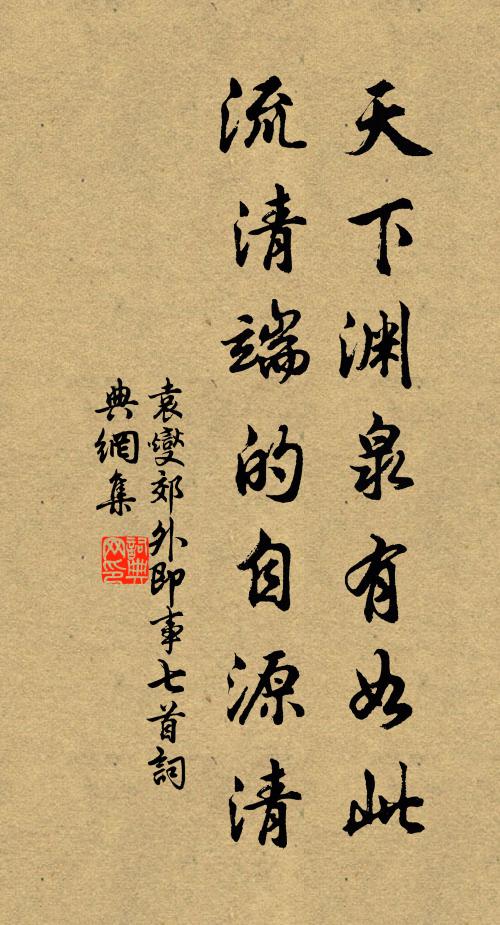 天下渊泉有如此
流清端的自源清
袁燮郊外即事七首詞
典網集
詞典
网印